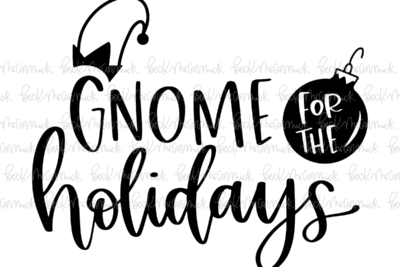 GNOME
FOR
THE
holidays